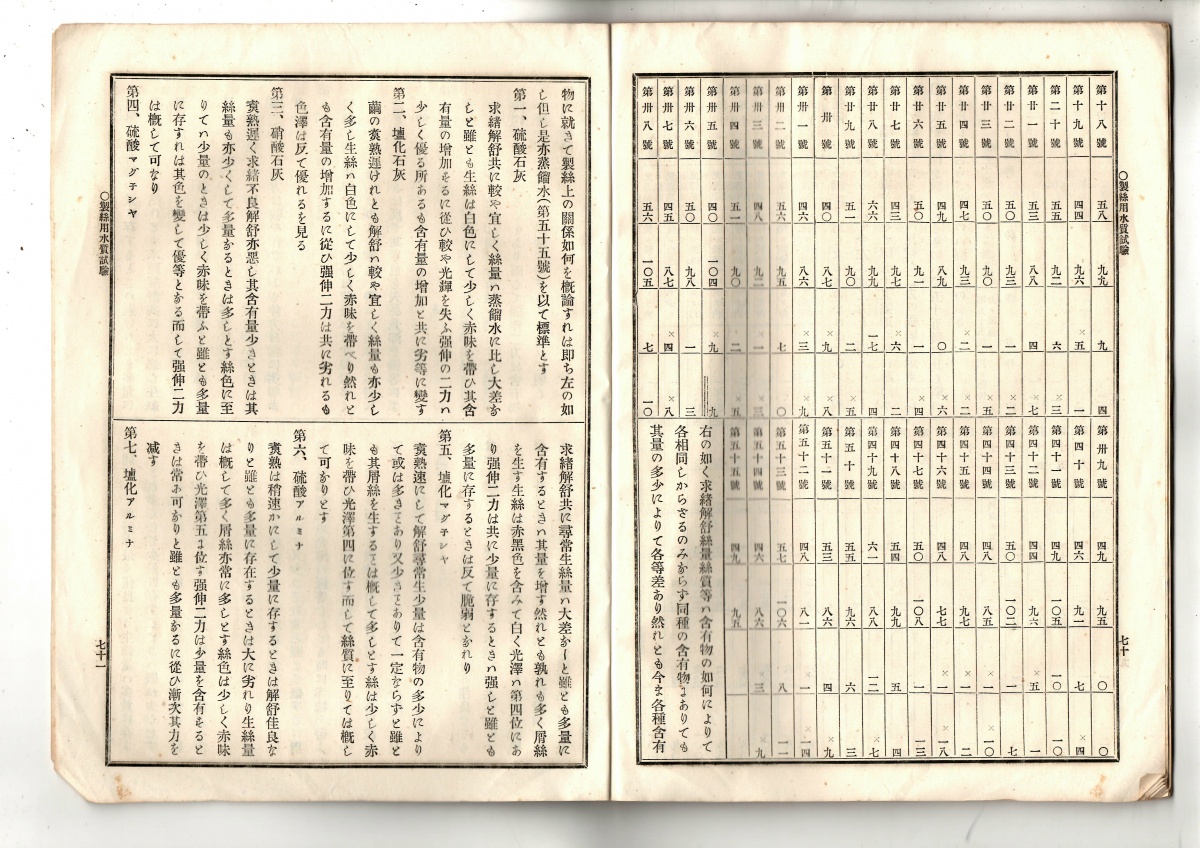 ○製絲用水質試驗
第十八號 五八 九九 九 四
第十九號 四四 九六 ×五 一
第二十號 五五 九二 六 ×三
第廿一號 五三 八八 四 ×七
第廿二號 五〇 九三 一 ×二
第廿三號 五〇 九一 ×一 ×五
第廿四號 四七 九三 ×二 ×二
第廿五號 四九 九〇 〇 ×六
第廿六號 五〇 九一 一 ×四
第廿七號 四三 九七 ×六 二
第廿八號 六六 九九 一七 四
第廿九號 五一 九〇 二 ×五
第卅號 四〇 八七 ×九 ×八
第卅一號 四六 八六 ×三 ×九
第卅二號 五六 九五 七 〇
第卅三號 四八 九二 一 ×三
第卅四號 五一 九〇 二 ×五
第卅五號 四〇 一〇四 ×九 九
第卅六號 五〇 九八 一 三
第卅七號 四五 八七 ×四 ×八
第卅八號 五六 一〇五 七 一〇
第卅九號 四九 九五 〇 〇
第四十號 四六 九一 七 ×四
第四十一號 五〇 一〇五 一〇 一〇
第四十二號 四九 九六 ×五 七
第四十三號 五〇 一〇二 一 一
第四十四號 四八 八五 ×一 ×一〇
第四十五號 四八 九七 ×一 二
第四十六號 四八 七七 ×一 ×一八
第四十七號 五〇 一〇八 一 一三
第四十八號 五四 九九 五 四
第四十九號 六一 八八 一二 ×七
第五十號 五五 九六 六 三
第五十一號 五三 八六 四 ×九
第五十二號 四八 八一 一 ×一四
第五十三號 五七 一〇六 八 一一
第五十四號 四六 八六 ×三 ×九
第五十五號 四九 九五
右の如く求緒解舒絲量絲質等ハ含有物の如何によりて
各相同しからさるのみからず同種の含有物まありても
其量の多少によりて各等差あり然れとも今ま各種含有
七十
物に就きて製絲上の關係如何を概論すれは即ち左の如
し但し是亦蒸餾水(第五十五號)を以て標準とす
第一、硫酸石灰
求緒解舒共に較や宜しく絲量ハ蒸餾水に比し大差か
しと雖とも生絲は白色にして少しく赤味を帶ひ其含
有量の增加をるに從ひ較や光輝を失ふ强伸の二力ハ
少しく優る所あるも含有量の增加と共に劣等に變す
第二、壚化石灰
繭の煑熟遲けれとも解舒ハ較や宜しく絲量も亦少し
く多し生絲ハ白色にして少しく赤味を帶へり然れと
も含有量の增加するに從ひ强伸二力は共に劣れるも
色澤は反て優れるを見る
第三、硝酸石灰
煑熟遲く求緒不良解舒亦惡し其含有量少きときは其
絲量も亦少くして多量かるときは多しとす絲色に至
りてハ少量のときは少しく赤味を帶ふと雖とも多量
に存すれは其色を變して優等とかる而して强伸二力
は概して可なり
第四、硫酸マグ子シヤ
求緒解舒共に尋常生絲量ハ大差かしと雖とも多量に
含有するときハ其量を增す然れとも孰れも多く屑絲
を生す生絲は赤黑色を含みて白く光澤ハ第四位にあ
り强伸二力は共に少量に存するときハ强しと雖とも
多量に存するときは反て脆弱とかれり
第五、壚化マグ子シヤ
煑熟速にして解舒尋常生少量は含有物の多少により
て或は多きとあり又少きとありて一定ならずと雖と
も其屑絲を生するとは概して多しとす絲は少しく赤
味を帶ひ光澤第四に位す而して絲質に至りては概し
て可かりとす
第六、硫酸アルミナ
煑熟は稍速かにして少量に存するときは解舒佳良な
りと雖とも多量に存在するときは大に劣れり生絲量
は概して多く屑絲亦常に多しとす絲色は少しく赤味
を帶ひ光澤第五ま位す强伸二力は少量を含有をると
きは常ホ可かりと雖とも多量かるに從ひ漸次其力を
减す
第七、壚化アルミナ
○製絲用水質試驗
七十一